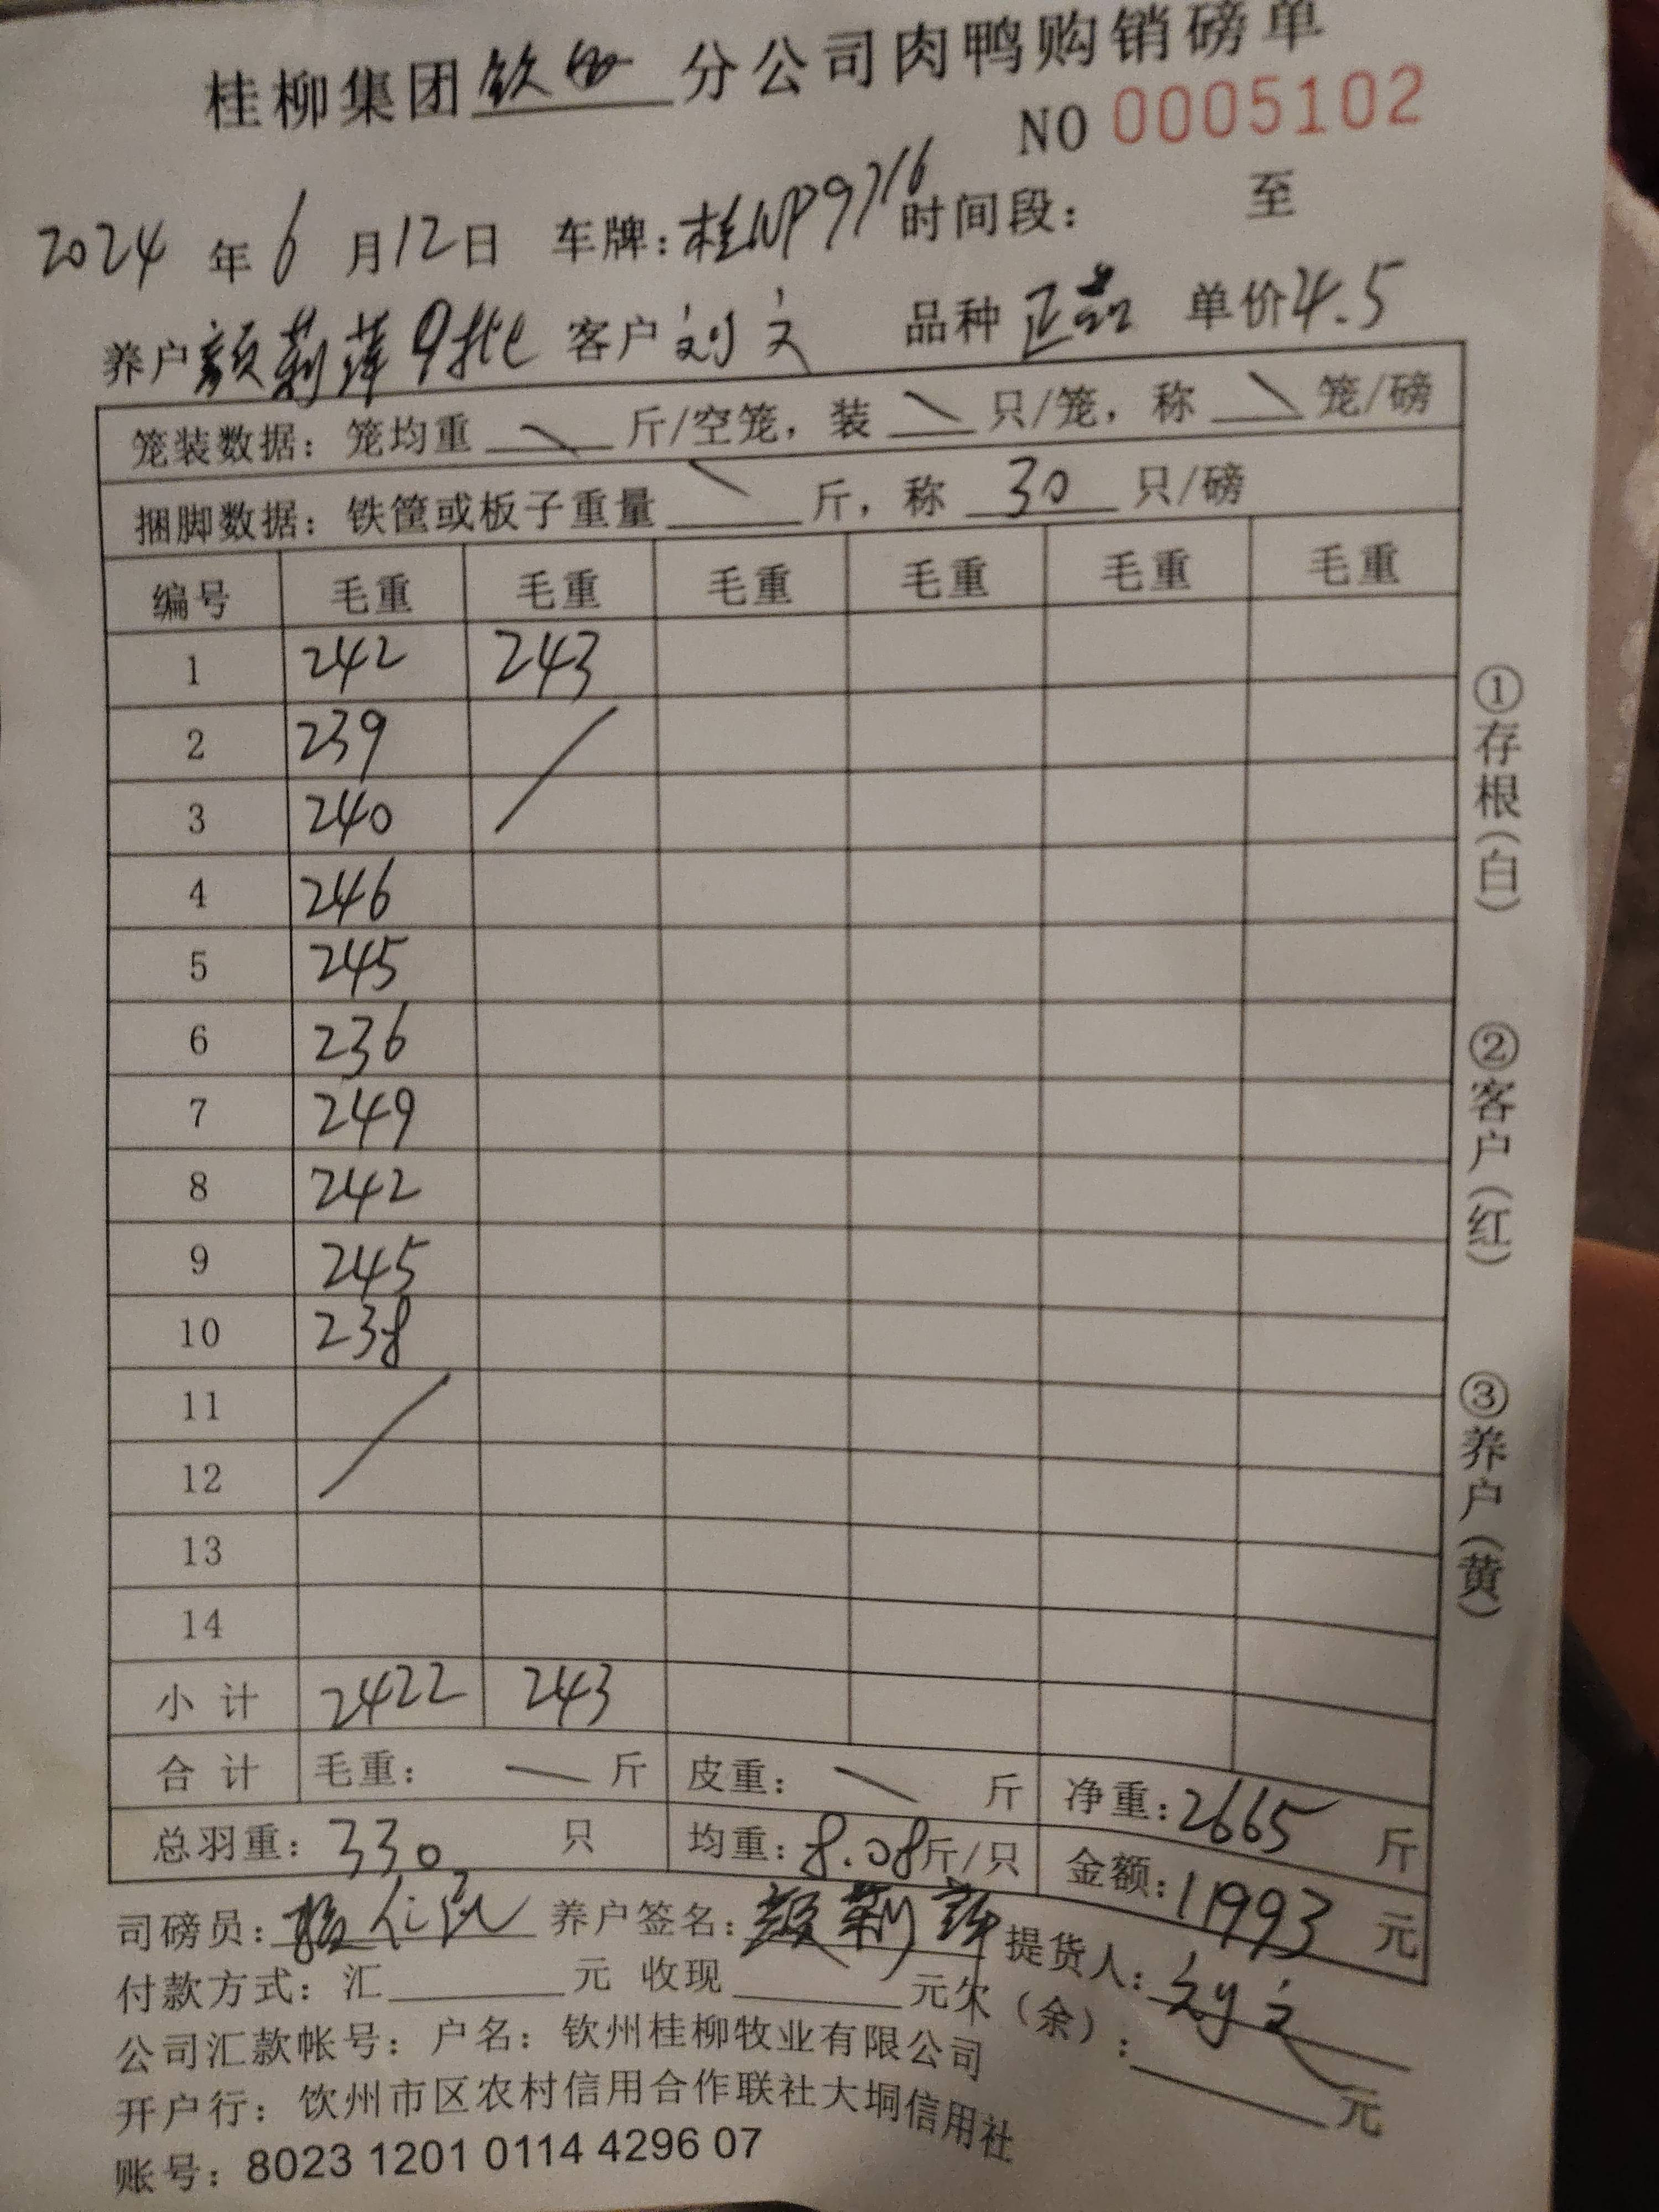 桂柳集团钦州分公司肉鸭购销磅单
NO 0005102
2024年6月12日 车牌:桂NP9716 时间段: 至
养户颜莉萍9批 客户刘文 品种正品 单价4.5
笼装数据:笼均重\斤/空笼,装\只/笼,称\笼/磅
捆脚数据:铁筐或板子重量\斤,称30只/磅
编号 毛重 毛重 毛重 毛重 毛重 毛重
1 242 243
2 239 /
3 240
4 246
5 245
6 236
7 249
8 242
9 245
10 238
11 /
12
13
14
小计 2422 243
合计 毛重:\斤 皮重:\斤 净重:2665斤
总羽重:330只 均重:8.08斤/只 金额:11993元
司磅员: 养户签名:颜莉萍 提货人:刘文
付款方式:汇____元 收现____元欠(余):____元
公司汇款帐号:户名:钦州桂柳牧业有限公司
开户行:饮州市区农村信用合作联社大垌信用社
账号:8023 1201 0114 4296 07
①存根(白) ②客户(红) ③养户(黄)